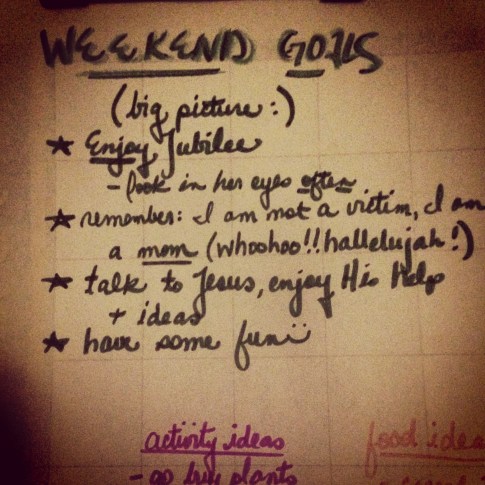 WEEKEND GOALS
(big picture:)
★ Enjoy Jubilee
- look in her eyes often
★ remember: I am not a victim, I am
a mom (whoohoo!! hallelujah!)
★ talk to Jesus, enjoy His help
+ ideas
★ have some fun :)
activity ideas food idea
- go buy plants